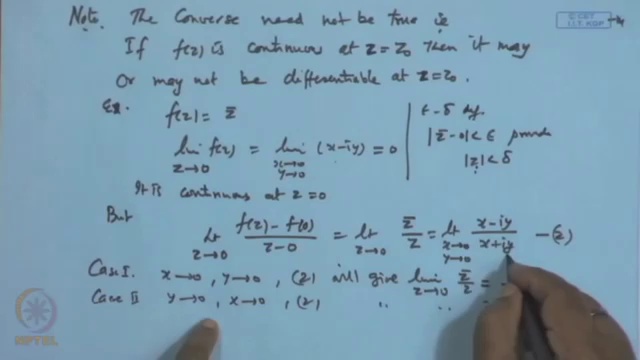 Note. The Converse need not be true ie
If f(z) is continuous at z = z₀ then it may
or may not be differentiable at z = z₀.
Ex. f(z) = z̄
lim z→0 f(z) = lim x→0 y→0 (x-iy) = 0
ε-δ def.
|z̄-0| < ε provide
|z| < δ
It is continuous at z = 0
But
lt z→0 f(z) - f(0) / z-0 = lt z→0 z̄/z = lt x→0 y→0 x-iy / x+iy — (2)
Case I. x→0, y→0, (2) will give lim z→0 z̄/z =
Case II y→0, x→0, (2) " "
© CET
I.I.T. KGP
NPTEL